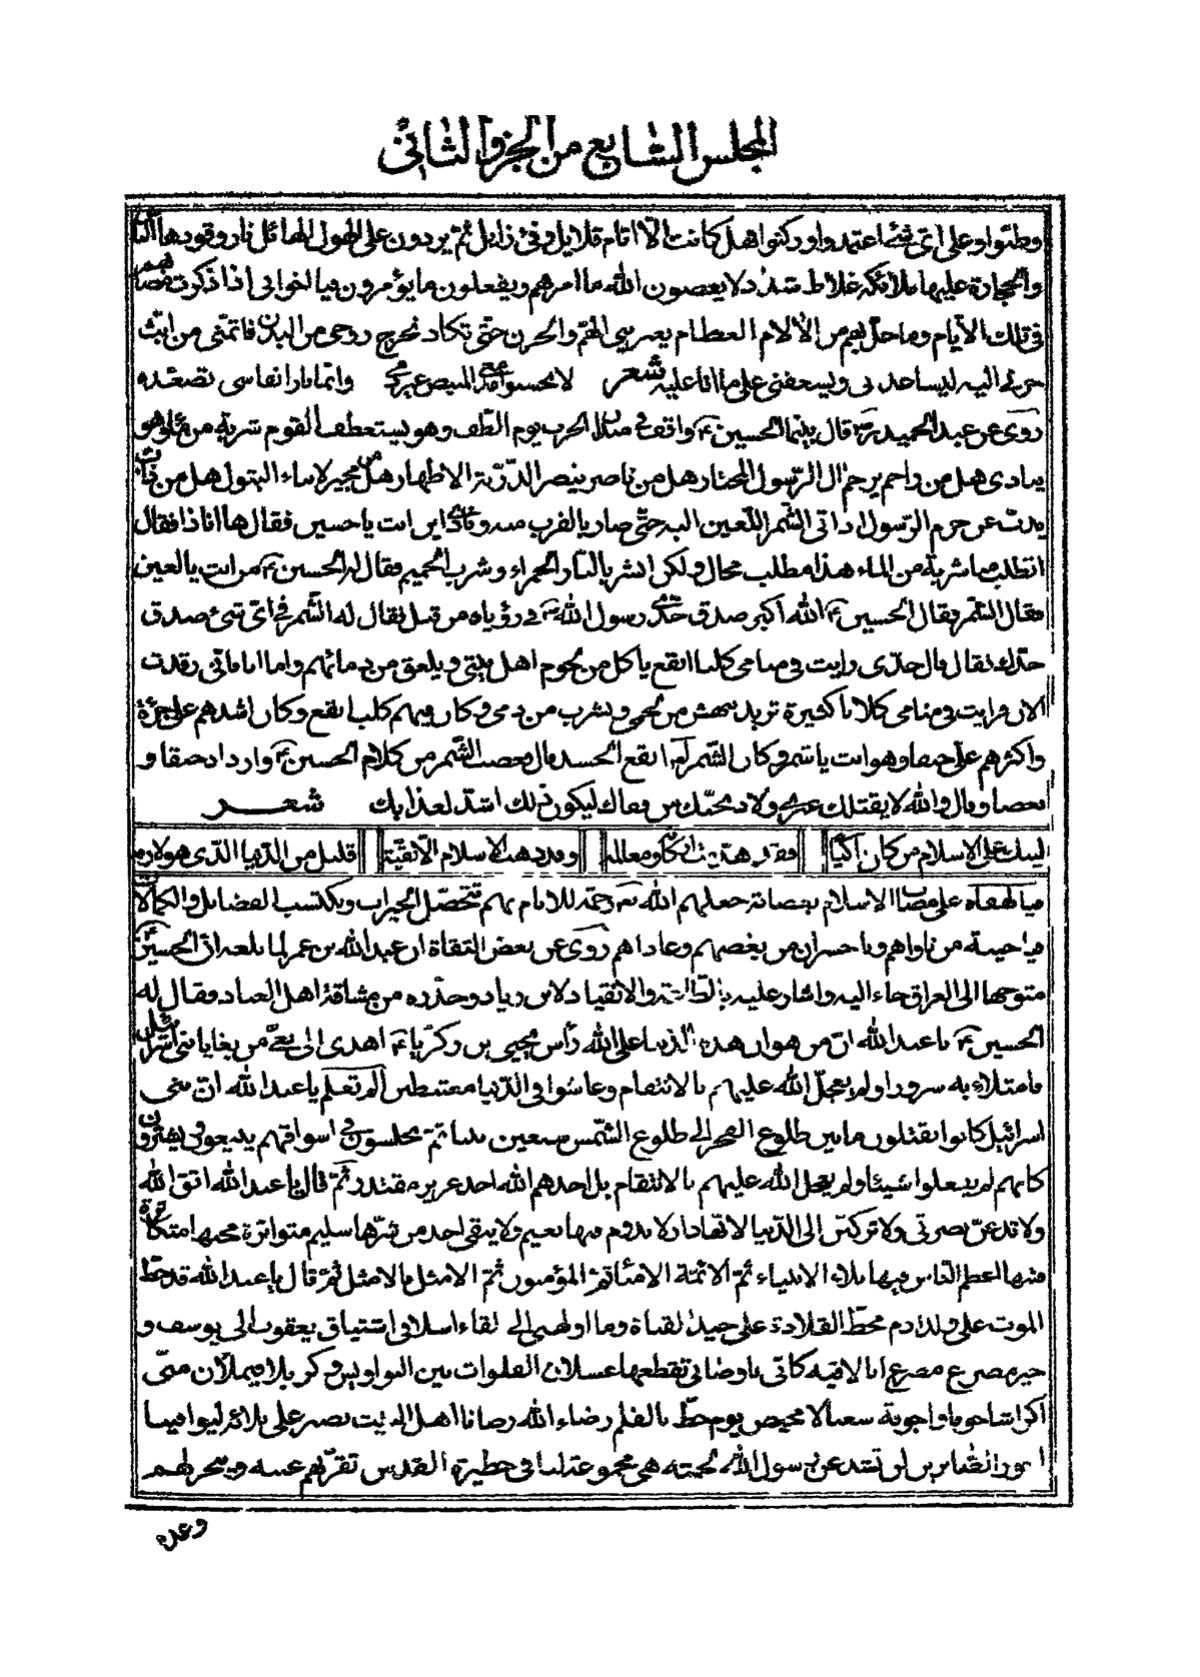 المجلس السابع من الجزو الثاني
وظنوا وعلى اي شئ اعتمدوا وركنوا هل كانت الا ايام قلايل وفئ زايل ثم يردون على الهول الهائل نار وقودها الناس
والحجارة عليها ملائكة غلاظ شداد لا يعصون الله ما امرهم ويفعلون ما يؤمرون فيا اخواني اذا ذكرت مصابهم
في تلك الايام وما حل بهم من الالام العظام يعتريني الهم والحزن حتى تكاد تخرج روحي من البدن فاتمنى من ابث
حزني اليه ليساعدني ويسعفني على ما انا عليه شعر لا تحسبوا المفيض عبرتي وانما نار انفاسي تصعده
روى عن عبد الحميد قال بينما الحسين ع واقف في ميدان الحرب يوم الطف وهو يستعطف القوم شربة من ماء وهو
ينادي هل من راحم يرحم ال الرسول المختار هل من ناصر ينصر الذرية الاطهار هل من مجير لابناء البتول هل من ذاب
يذب عن حرم الرسول اذ اتى الشمر اللعين اليه حتى صار بالقرب منه ونادى اين انت يا حسين فقال ها انا ذا فقال
اتطلب منا شربة من الماء هذا مطلب محال ولكن ابشر بالنار الحمراء وشرب الحميم فقال له الحسين ع من انت يا لعين
فقال الشمر فقال الحسين ع الله اكبر صدق جدي رسول الله ص في رؤياه من قبل فقال له الشمر في اي شئ صدق
جدك فقال قال جدي رايت في منامي كلبا ابقع ياكل من لحوم اهل بيتي ويلعق من دمائهم واما انا فاني رقدت
الان فرايت في منامي كلابا كثيرة تريد تنهش من لحمي وتشرب من دمي وكان فيهم كلب ابقع وكان اشدهم علي جرأة
واكثرهم علي حنقا وهو انت يا شمر وكان الشمر لع ابقع الجسد قال فغضب الشمر من كلام الحسين ع وازداد حنقا و
بغضا وقال والله لا يقتلك غيري ولاذبحنك من قفاك ليكون ذلك اشد لعذابك شعر
ليبك على الاسلام من كان باكيا فقد هدمت اركانه ومعالمه وقد ذهب الاسلام الا بقية قليل من الدنيا الذي هو لازمه
فيا لهفاه على مصاب الاسلام بعصابة جعلهم الله تع رحمة للانام بهم تتحصل الخيرات وتكتسب الفضايل والكمالات
فيا خيبة من ناواهم ويا خسران من بغضهم وعاداهم روى عن بعض الثقاة ان عبد الله بن عمر لما بلغه ان الحسين ع
متوجها الى العراق جاء اليه واشار عليه بالطاعة والانقياد لابن زياد وحذره من مشاقة اهل العناد فقال له
الحسين ع يا عبد الله ان من هوان هذه الدنيا على الله راس يحيى بن زكريا ع اهدى الى بغي من بغايا بني اسرائيل
فامتلاء به سرورا ولم يعجل الله عليهم بالانتقام وعاشوا في الدنيا مغتبطين الم تعلم يا عبد الله ان بني
اسرائيل كانوا يقتلون ما بين طلوع الفجر الى طلوع الشمس سبعين نبيا ثم يجلسون في اسواقهم يبيعون ويشترون
كانهم لم يفعلوا شيئا ولم يعجل الله عليهم بالانتقام بل اخذهم الله اخذ عزيز مقتدر ثم قال يا عبد الله اتق الله
ولا تدعن نصرتي ولا تركنن الى الدنيا لانها دار لا يدوم فيها نعيم ولا يبقى احد من شرها سليم متواترة محنها متكاثرة
فتنها اعظم الناس فيها بلاء الانبياء ثم الائمة الامناء ثم المؤمنون ثم الامثل بالامثل ثم قال يا عبد الله قد خط
الموت على ولد ادم مخط القلادة على جيد الفتاة وما اولهني الى لقاء اسلافي اشتياق يعقوب الى يوسف و
خير مصرع مصرع انا لاقيه كاني باوصالي تقطعها عسلان الفلوات بين النواويس وكربلا فيملأن مني
اكراشا جوفا واجوبة سغبا لا محيص يوم خط بالقلم رضاء الله رضانا اهل البيت نصبر على بلائه ليوافينا
اجور الصابرين لن تشذ عن رسول الله لحمته هي مجموعة لنا في حظيرة القدس تقر بهم عينه وينجز لهم
وعده